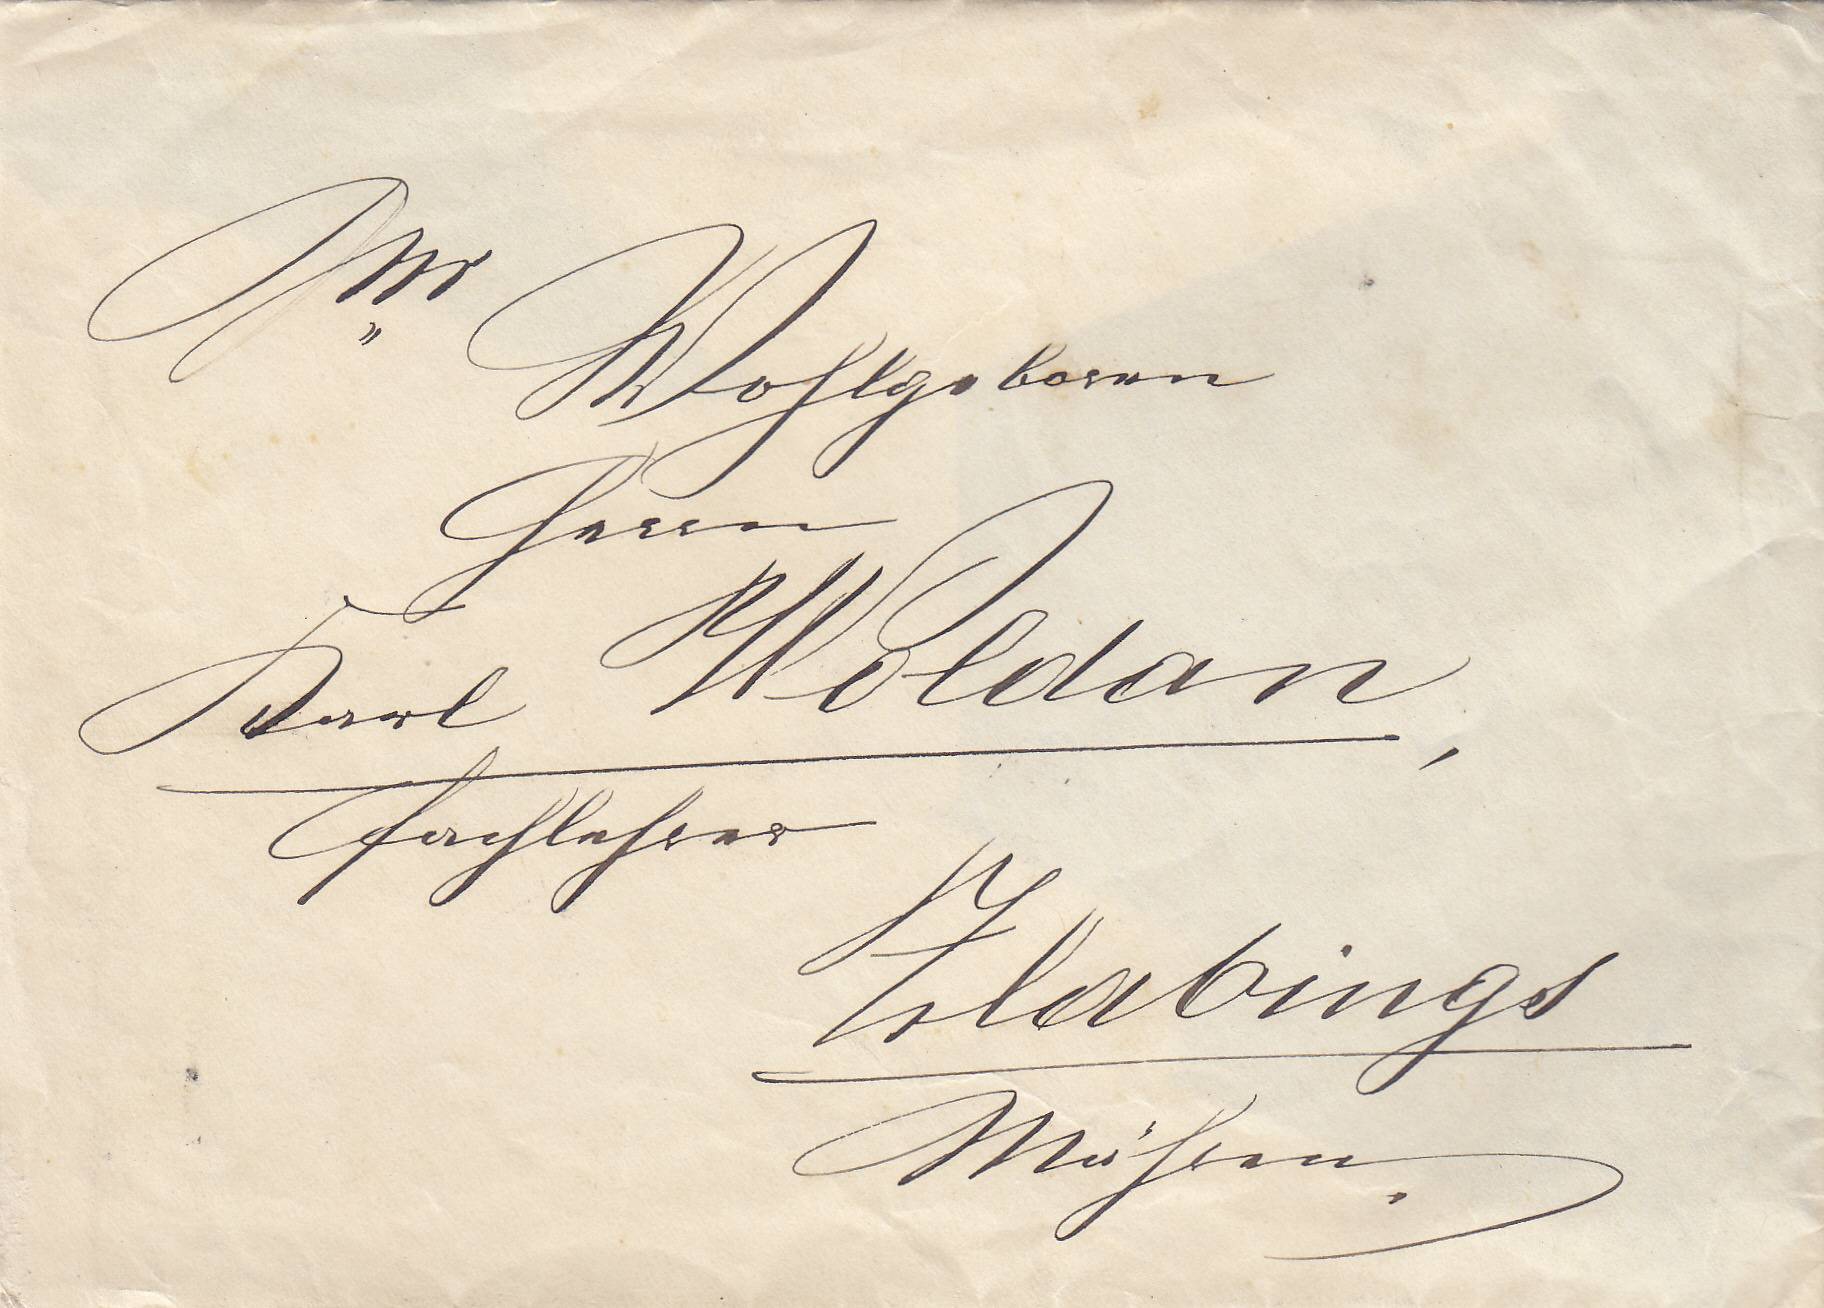 Sr. Wohlgeboren
Herrn
Karl Woldan,
Fachlehrer
Zlabings
Mähren.